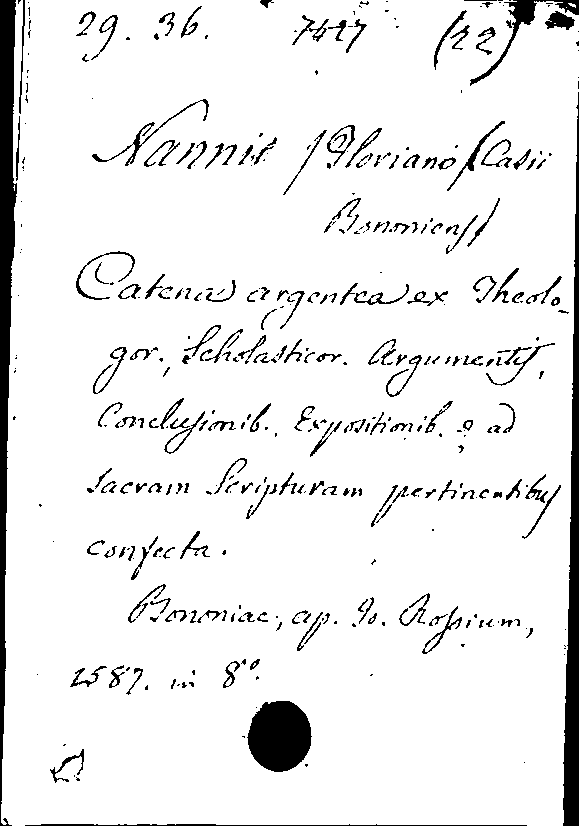 29. 36. 7427 (22)
Nannis /Floriano/ Casii
Bononiens/
Catena argentea ex Theolo-
gor., Scholasticor. Argumentis,
Conclusionib., Expositionib. e ad
sacram Scripturam pertinentibus
confecta.
Bononiae, ap. Jo. Rossium,
1587. in 8o.